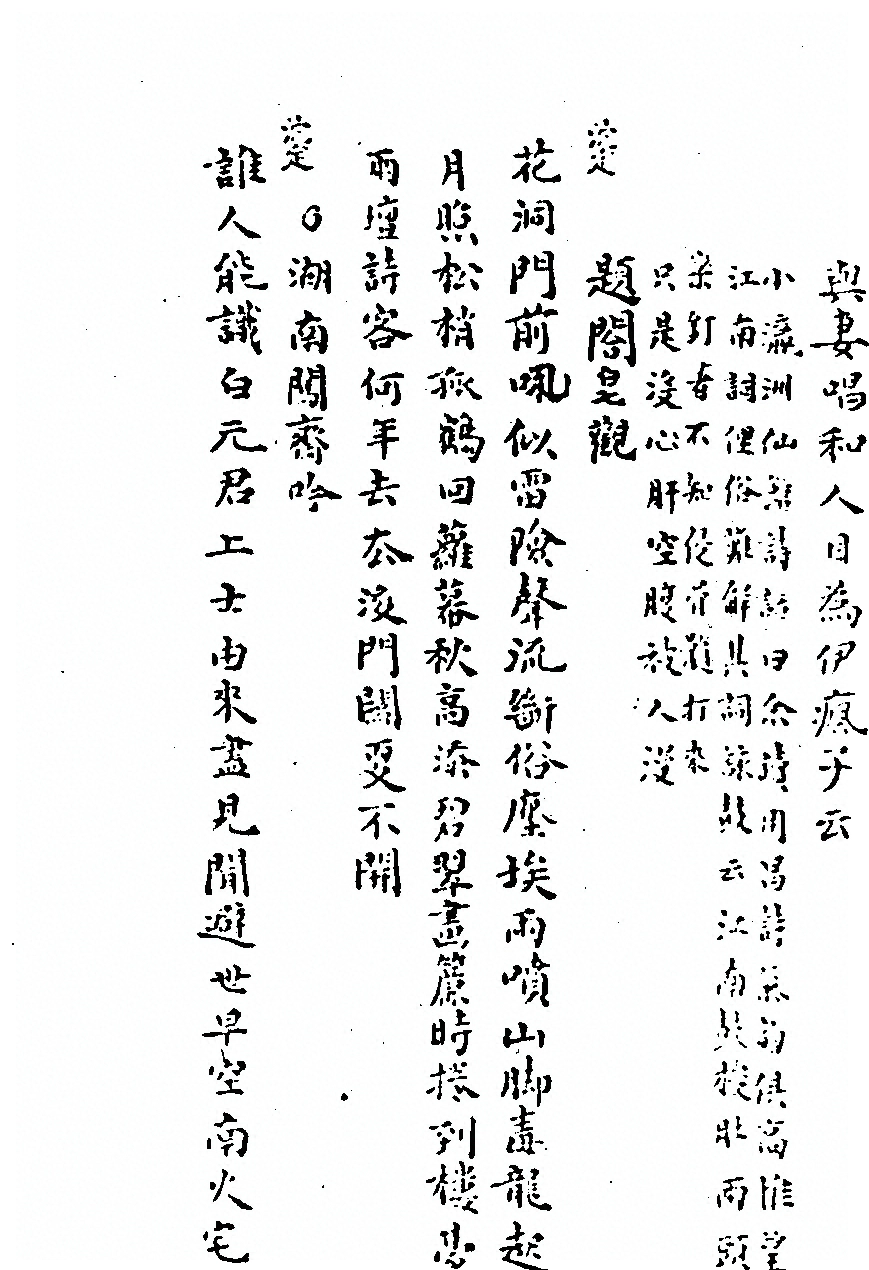 與妻唱和人目為伊瘋子云
小瀛洲仙籍詩話曰余讀用昌詩氣韵俱高惟望
江南詞俚俗難解其詞詠鼓云江南鼓梭肚兩頭
欒釘者不知侵骨髓打來
只是沒心肝空腹被人漫
題閤皂觀
花洞門前吠似雷險聲流斷俗塵埃雨噴山脚毒龍起
月照松梢孤鶴回蘿幕秋高添碧翠畫簾時捲到樓臺
雨壇詩客何年去去後門關更不開
湖南闖齋吟
誰人能識白元君上士由來盡見聞避世早空南火宅